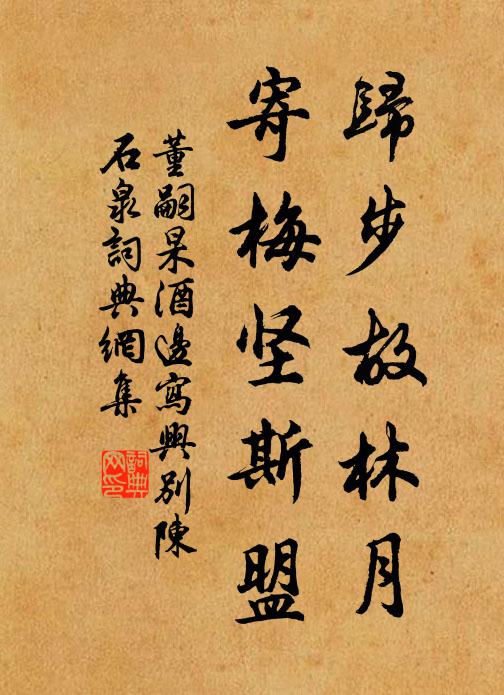 歸步故林月
寄梅坚斯盟
董嗣杲酒邊寫興別陳
石泉詞典網集
詞典網印